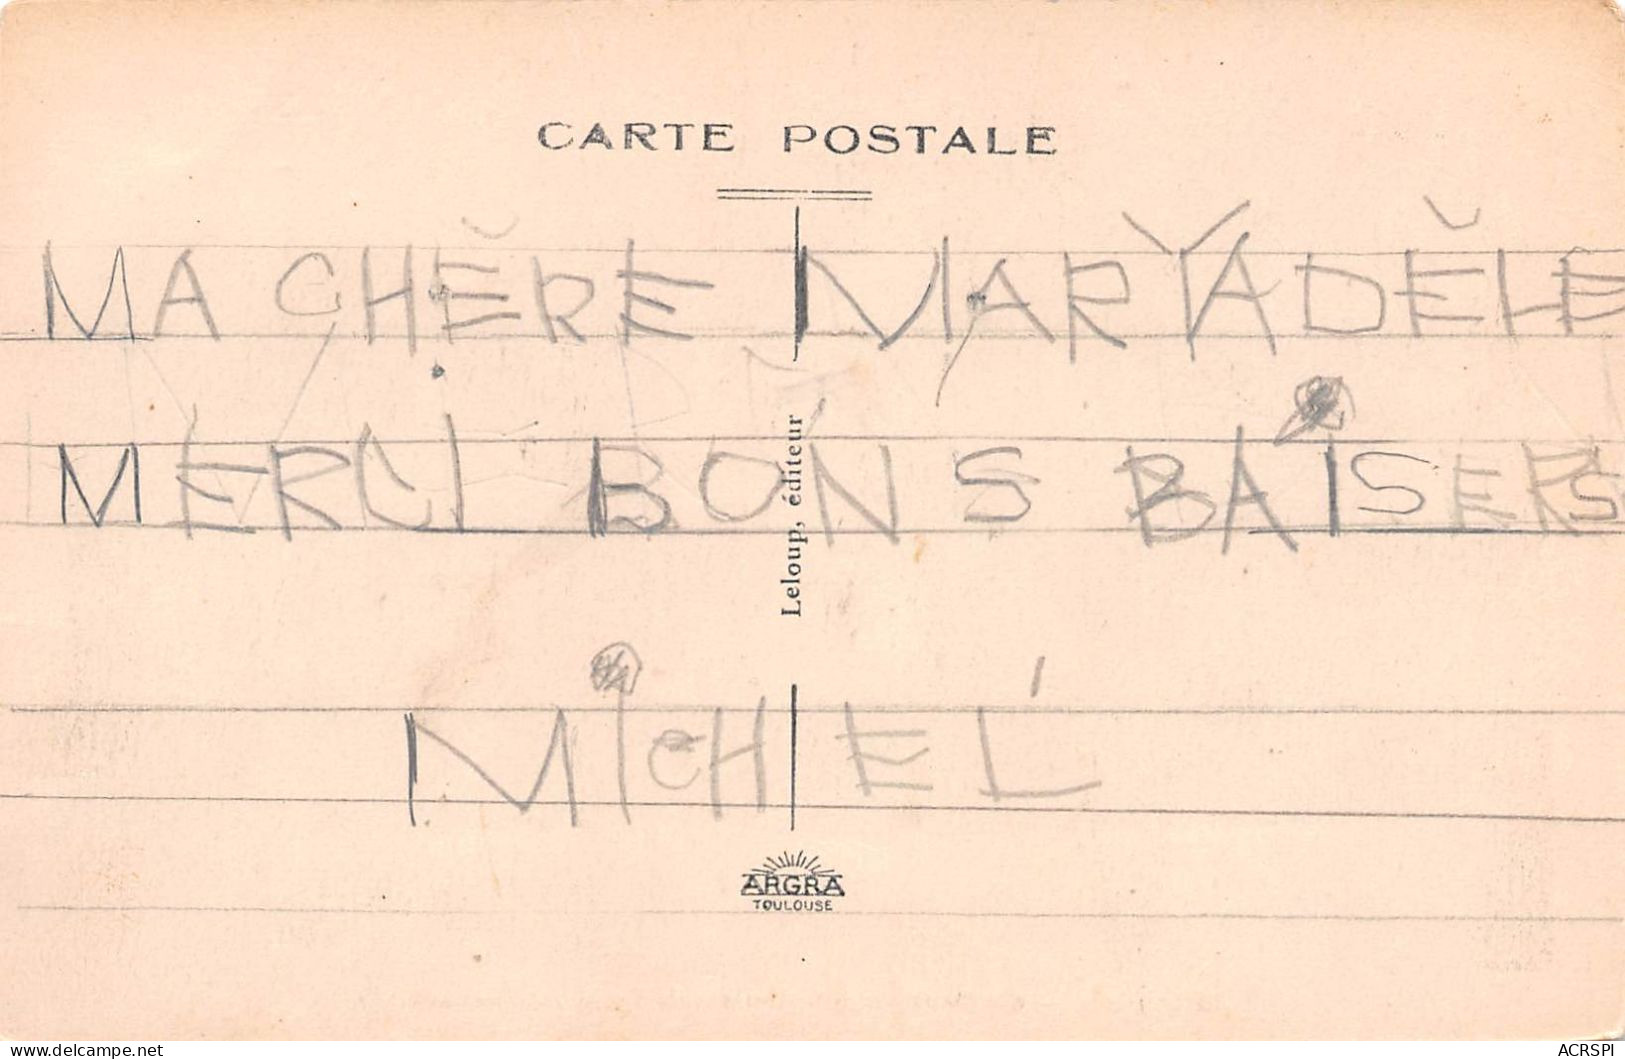 CARTE POSTALE
MA CHÈRE MARYADÈLE
MERCI BONS BAISERS
MICHEL
Leloup, éditeur
ARGRA
TOULOUSE
delcampe.net
ACRSPI